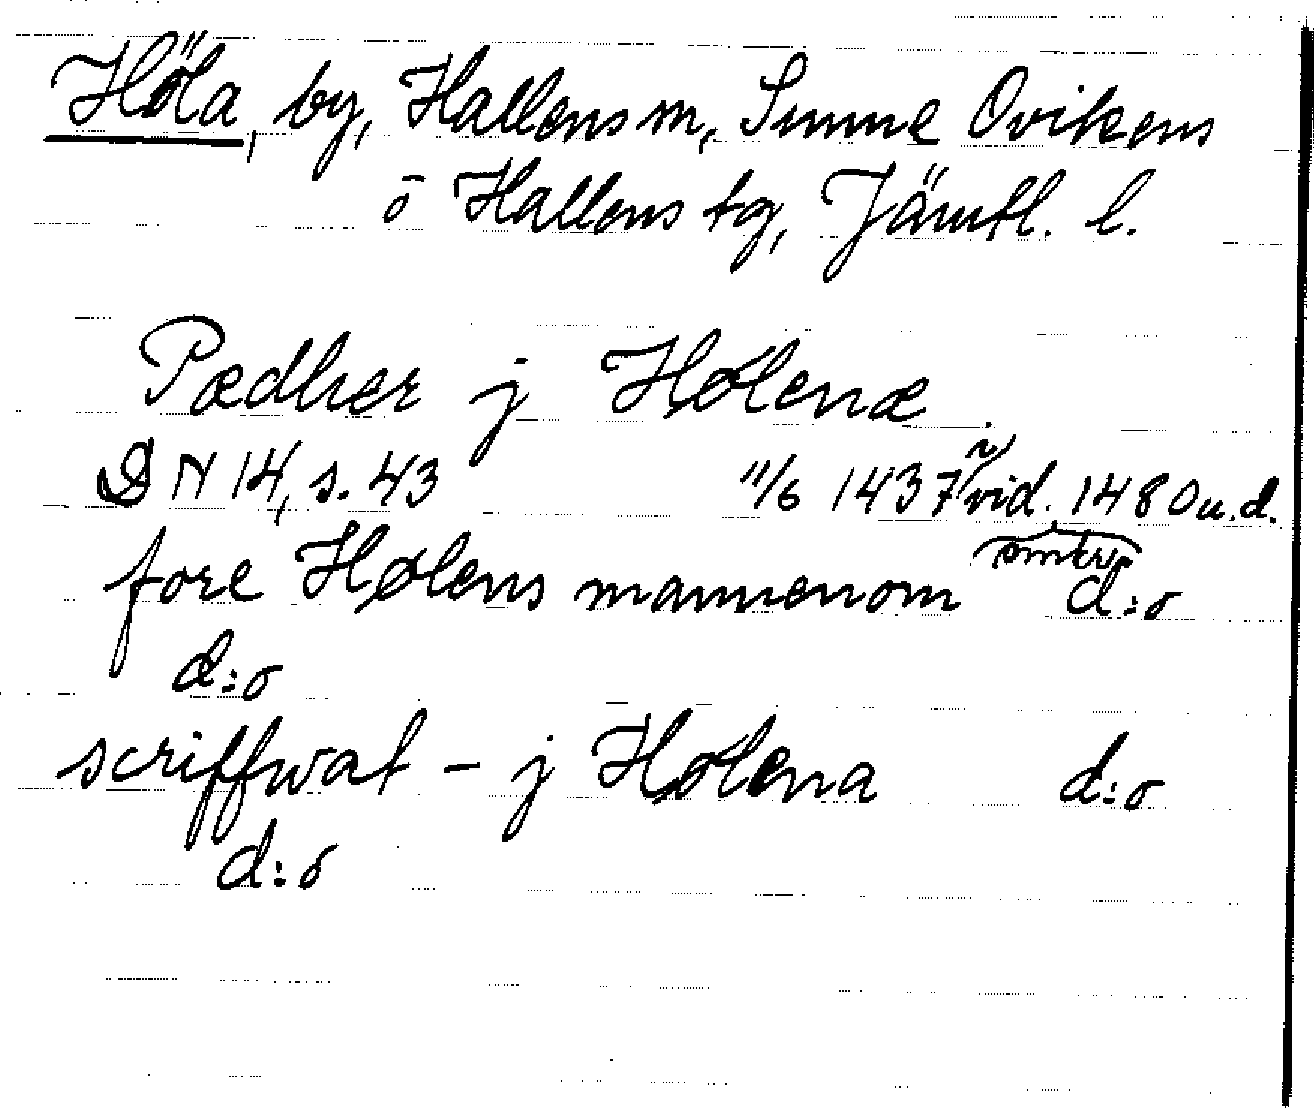 Höla, by, Hallens sn, Sunne Ovikens
o Hallens tg, Jämtl. l.
Pædher j Hølenæ
DN 14, s. 43 11/6 1437 vid. 1480 u.d.
omkr.
fore Hølens mannenom d:o
d:o
scriffwat - j Hølena d:o
d:o